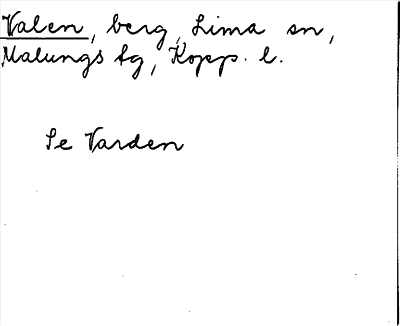 Valen, berg, Lima sn,
Malungs tg, Kopp. l.
Se Varden